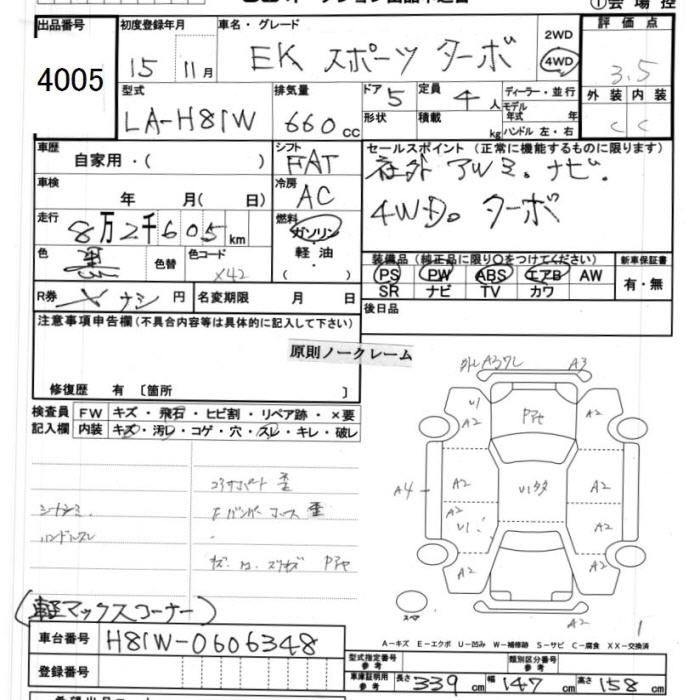 ①会場控
出品番号
4005
初度登録年月
15 11月
車名・グレード
EK スポーツ ターボ
2WD
4WD
評価点
3.5
外装 内装
C C
型式
LA-H81W
排気量
660cc
ドア 5
形状
定員 4人
積載 kg
ディーラー・並行
モデル年式 年
ハンドル 左・右
車歴
自家用・( )
シフト
FAT
セールスポイント (正常に機能するものに限ります)
社外 AWミ。ナビ。
4WD。ターボ
車検
年 月( 日)
冷房
AC
走行
8万2千605km
燃料
ガソリン・
軽油・
( )
色
黒
色替
色コード
X42
装備品 (純正品に限り○をつけてください)
PS PW ABS エアB AW
SR ナビ TV カワ
新車保証書
有・無
R券
ナシ 円
名変期限 月 日
後日品
注意事項申告欄(不具合内容等は具体的に記入して下さい)
原則ノークレーム
修復歴 有〔箇所 〕
検査員記入欄
FW キズ・飛石・ヒビ割・リペア跡・×要
内装 キズ・汚レ・コゲ・穴・スレ・キレ・破レ
コアサポート 歪
A3
U1
A2
A2
A2
A4
A2
A2
A2
U1
A2
A2
A2
A2
スペア
1
A-キズ E-エクボ U-凹み W-補修跡 S-サビ C-腐食 XX-交換済
(軽マックスコーナー)
車台番号
H81W-0606348
登録番号
型式指定番号
参考
類別区分番号
参考
車庫証明用
参考
長さ 339cm 幅 147cm 高さ 158cm